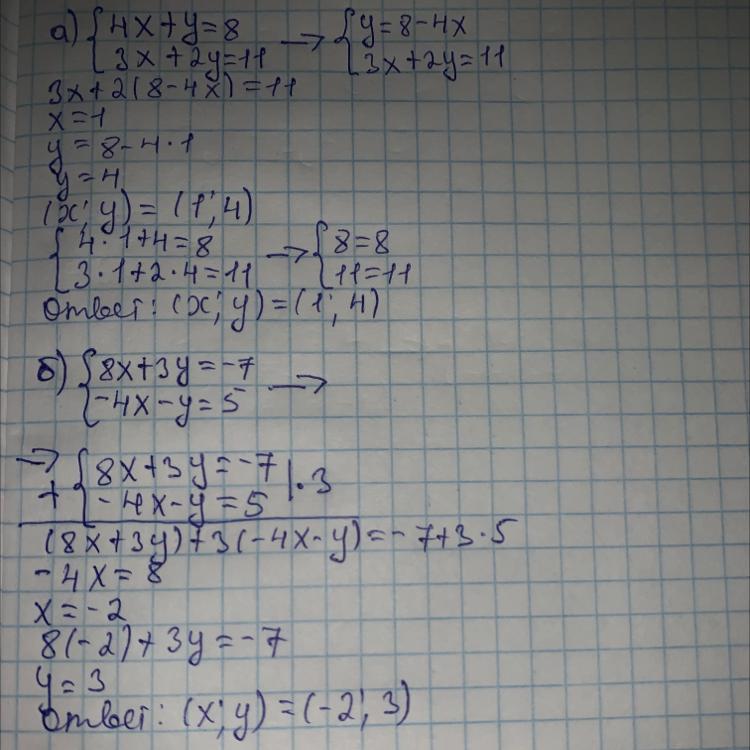 а) { 4x+y=8 → { y=8-4x
3x+2y=11 3x+2y=11
3x+2(8-4x)=11
x=1
y=8-4·1
y=4
(x; y)=(1; 4)
{ 4·1+4=8 → { 8=8
3·1+2·4=11 11=11
Ответ: (x; y)=(1; 4)
б) { 8x+3y=-7 →
-4x-y=5
→ { 8x+3y=-7
+ -4x-y=5 |·3
(8x+3y)+3(-4x-y)=-7+3·5
-4x=8
x=-2
8(-2)+3y=-7
y=3
Ответ: (x; y)=(-2; 3)